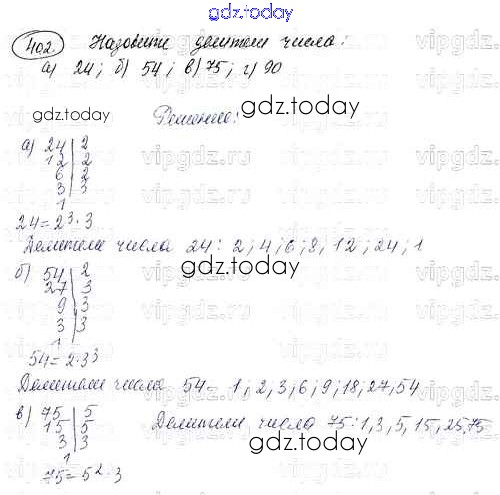 gdz.today
402. Назовите делители числа:
а) 24; б) 54; в) 75; г) 90
gdz.today
gdz.today
Решение:
vipgdz.ru vipgdz.ru
а) 24 | 2
12 | 2
6 | 2
3 | 3
1
24 = 2³·3
Делители числа 24: 2; 4; 6; 8; 12; 24; 1
gdz.today
б) 54 | 2
27 | 3
9 | 3
3 | 3
1
54 = 2·3³
gdz.today
Делители числа 54 - 1; 2; 3; 6; 9; 18; 27, 54
в) 75 | 5
15 | 5
3 | 3
1
75 = 5²·3
Делители числа 75: 1, 3, 5, 15, 25, 75
gdz.today